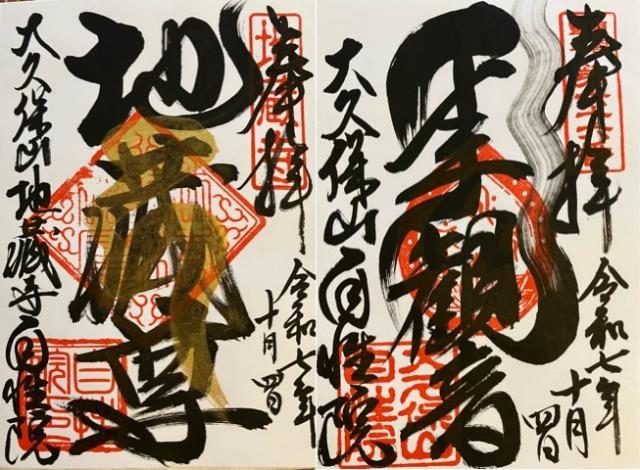 奉拝
令和七年
十月四日
地藏尊
大久保山地蔵寺自性院
奉拝
令和七年
十月四日
聖觀音
大久保山自性院